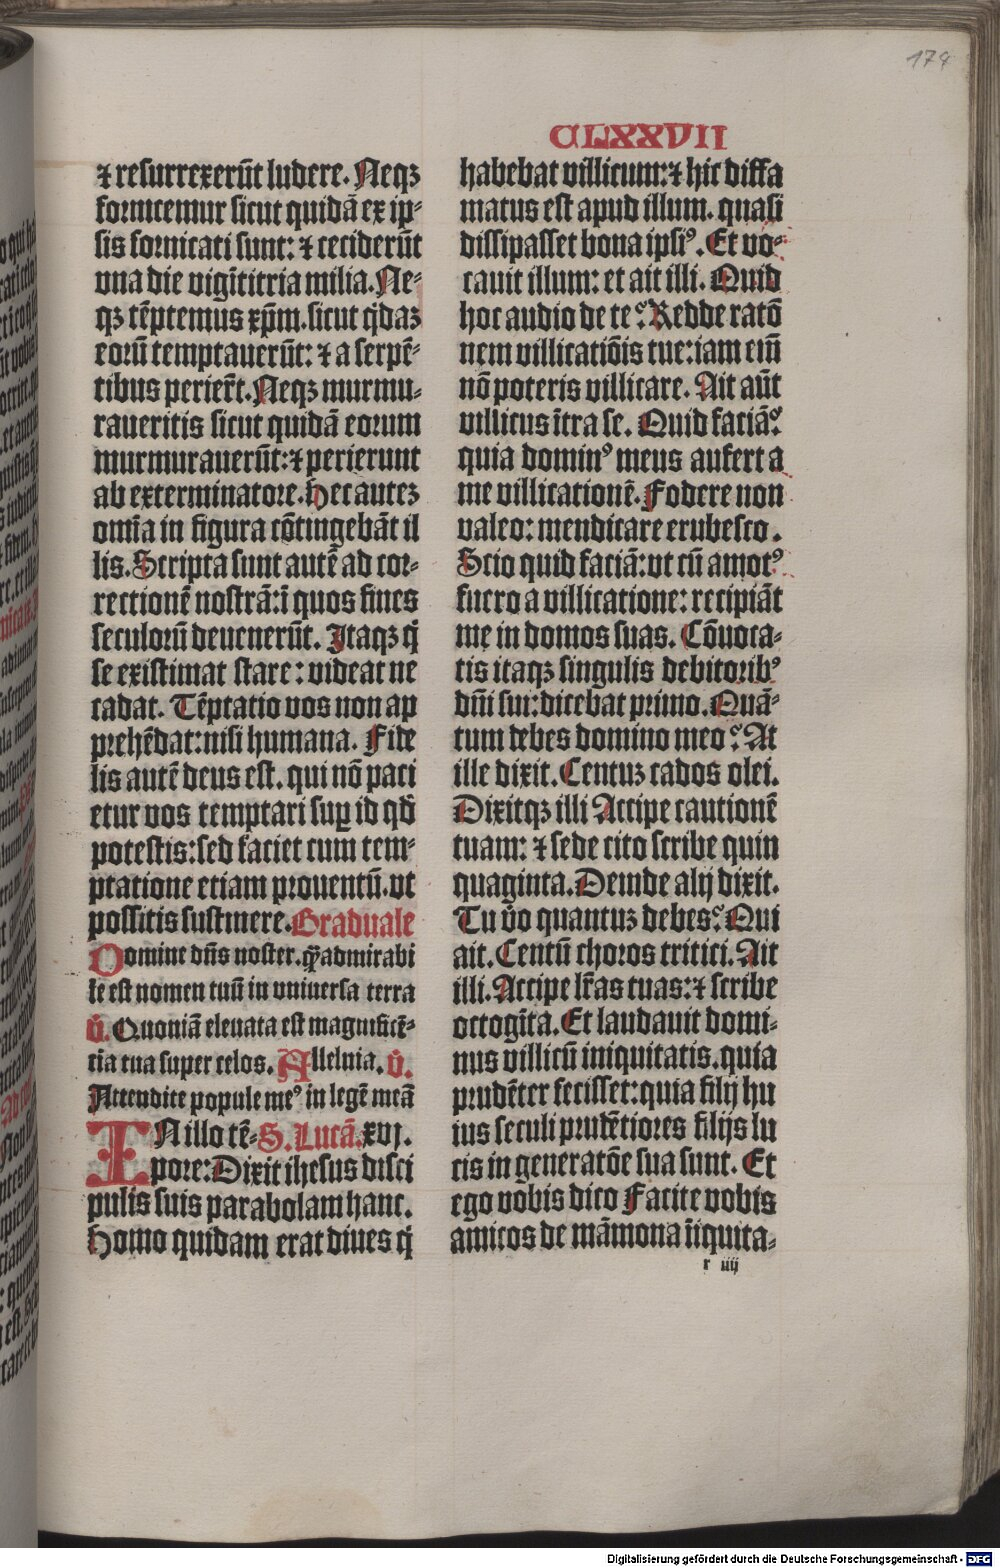 174
CLXXVII
⁊ resurrexerūt ludere. Neqꝫ
fornicemur sicut quidā ex ip⸗
sis fornicati sunt: ⁊ ceciderūt
vna die vigītitria milia. Ne⸗
qꝫ tēptemus xp̄m. sicut q̇daꝫ
eorū temptauerūt: ⁊ a serpē⸗
tibus perier̄t. Neqꝫ murmu⸗
raueritis sicut quidā eorum
murmurauerūt: ⁊ perierunt
ab exterminatore. Hec auteꝫ
om̄ia in figura cōtingebāt il
lis. Scripta sunt autē ad cor⸗
rectionē nostrā: ī quos fines
seculorū deuenerūt. Itaqꝫ q̇
se existimat stare: videat ne
cadat. Tēptatio vos non ap
prehēdat: nisi humana. Fide
lis autē deus est. qui nō paci
etur vos temptari suꝑ id qd̄
potestis: sed faciet cum tem⸗
ptatione etiam prouentū. vt
possitis sustinere. Graduale
Domine dn̄s noster. q̄ꝫ admirabi
le est nomen tuū in vniuersa terra
v̇. Quoniā eleuata est magnificē⸗
cia tua super celos. Alleluia. v̇.
Attendite popule meꝰ in legē meā
IN illo tē⸗ S. Lucā. xvj.
pore: Dixit ihesus disci
pulis suis parabolam hanc.
Homo quidam erat diues q̇
habebat villicum: ⁊ hic diffa
matus est apud illum. quasi
dissipasset bona ipsiꝰ. Et vo⸗
cauit illum: et ait illi. Quid
hoc audio de te? Redde ratō
nem villicatiōis tue: iam eni̅
nō poteris villicare. Ait aūt
villicus ītra se. Quid faciā?
quia dominꝰ meus aufert a
me villicationē. Fodere non
valeo: mendicare erubesco.
Scio quid faciā: vt cū amotꝰ
fuero a villicatione: recipiāt
me in domos suas. Cōuoca⸗
tis itaqꝫ singulis debitoribꝰ
dn̄i sui: dicebat primo. Quā⸗
tum debes domino meo? At
ille dixit. Centuꝫ cados olei.
Dixitqꝫ illi Accipe cautionē
tuam: ⁊ sede cito scribe quin
quaginta. Deinde alij dixit.
Tu v̄o quantuꝫ debes? Qui
ait. Centū choros tritici. Ait
illi. Accipe lr̄as tuas: ⁊ scribe
octogīta. Et laudauit domi⸗
nus villicū iniquitatis. quia
prudēter fecisset: quia filij hu
ius seculi prudētiores filijs lu
cis in generatōe sua sunt. Et
ego vobis dico Facite vobis
amicos de māmona īiquita⸗
r iiij
Digitalisierung gefördert durch die Deutsche Forschungsgemeinschaft - DFG